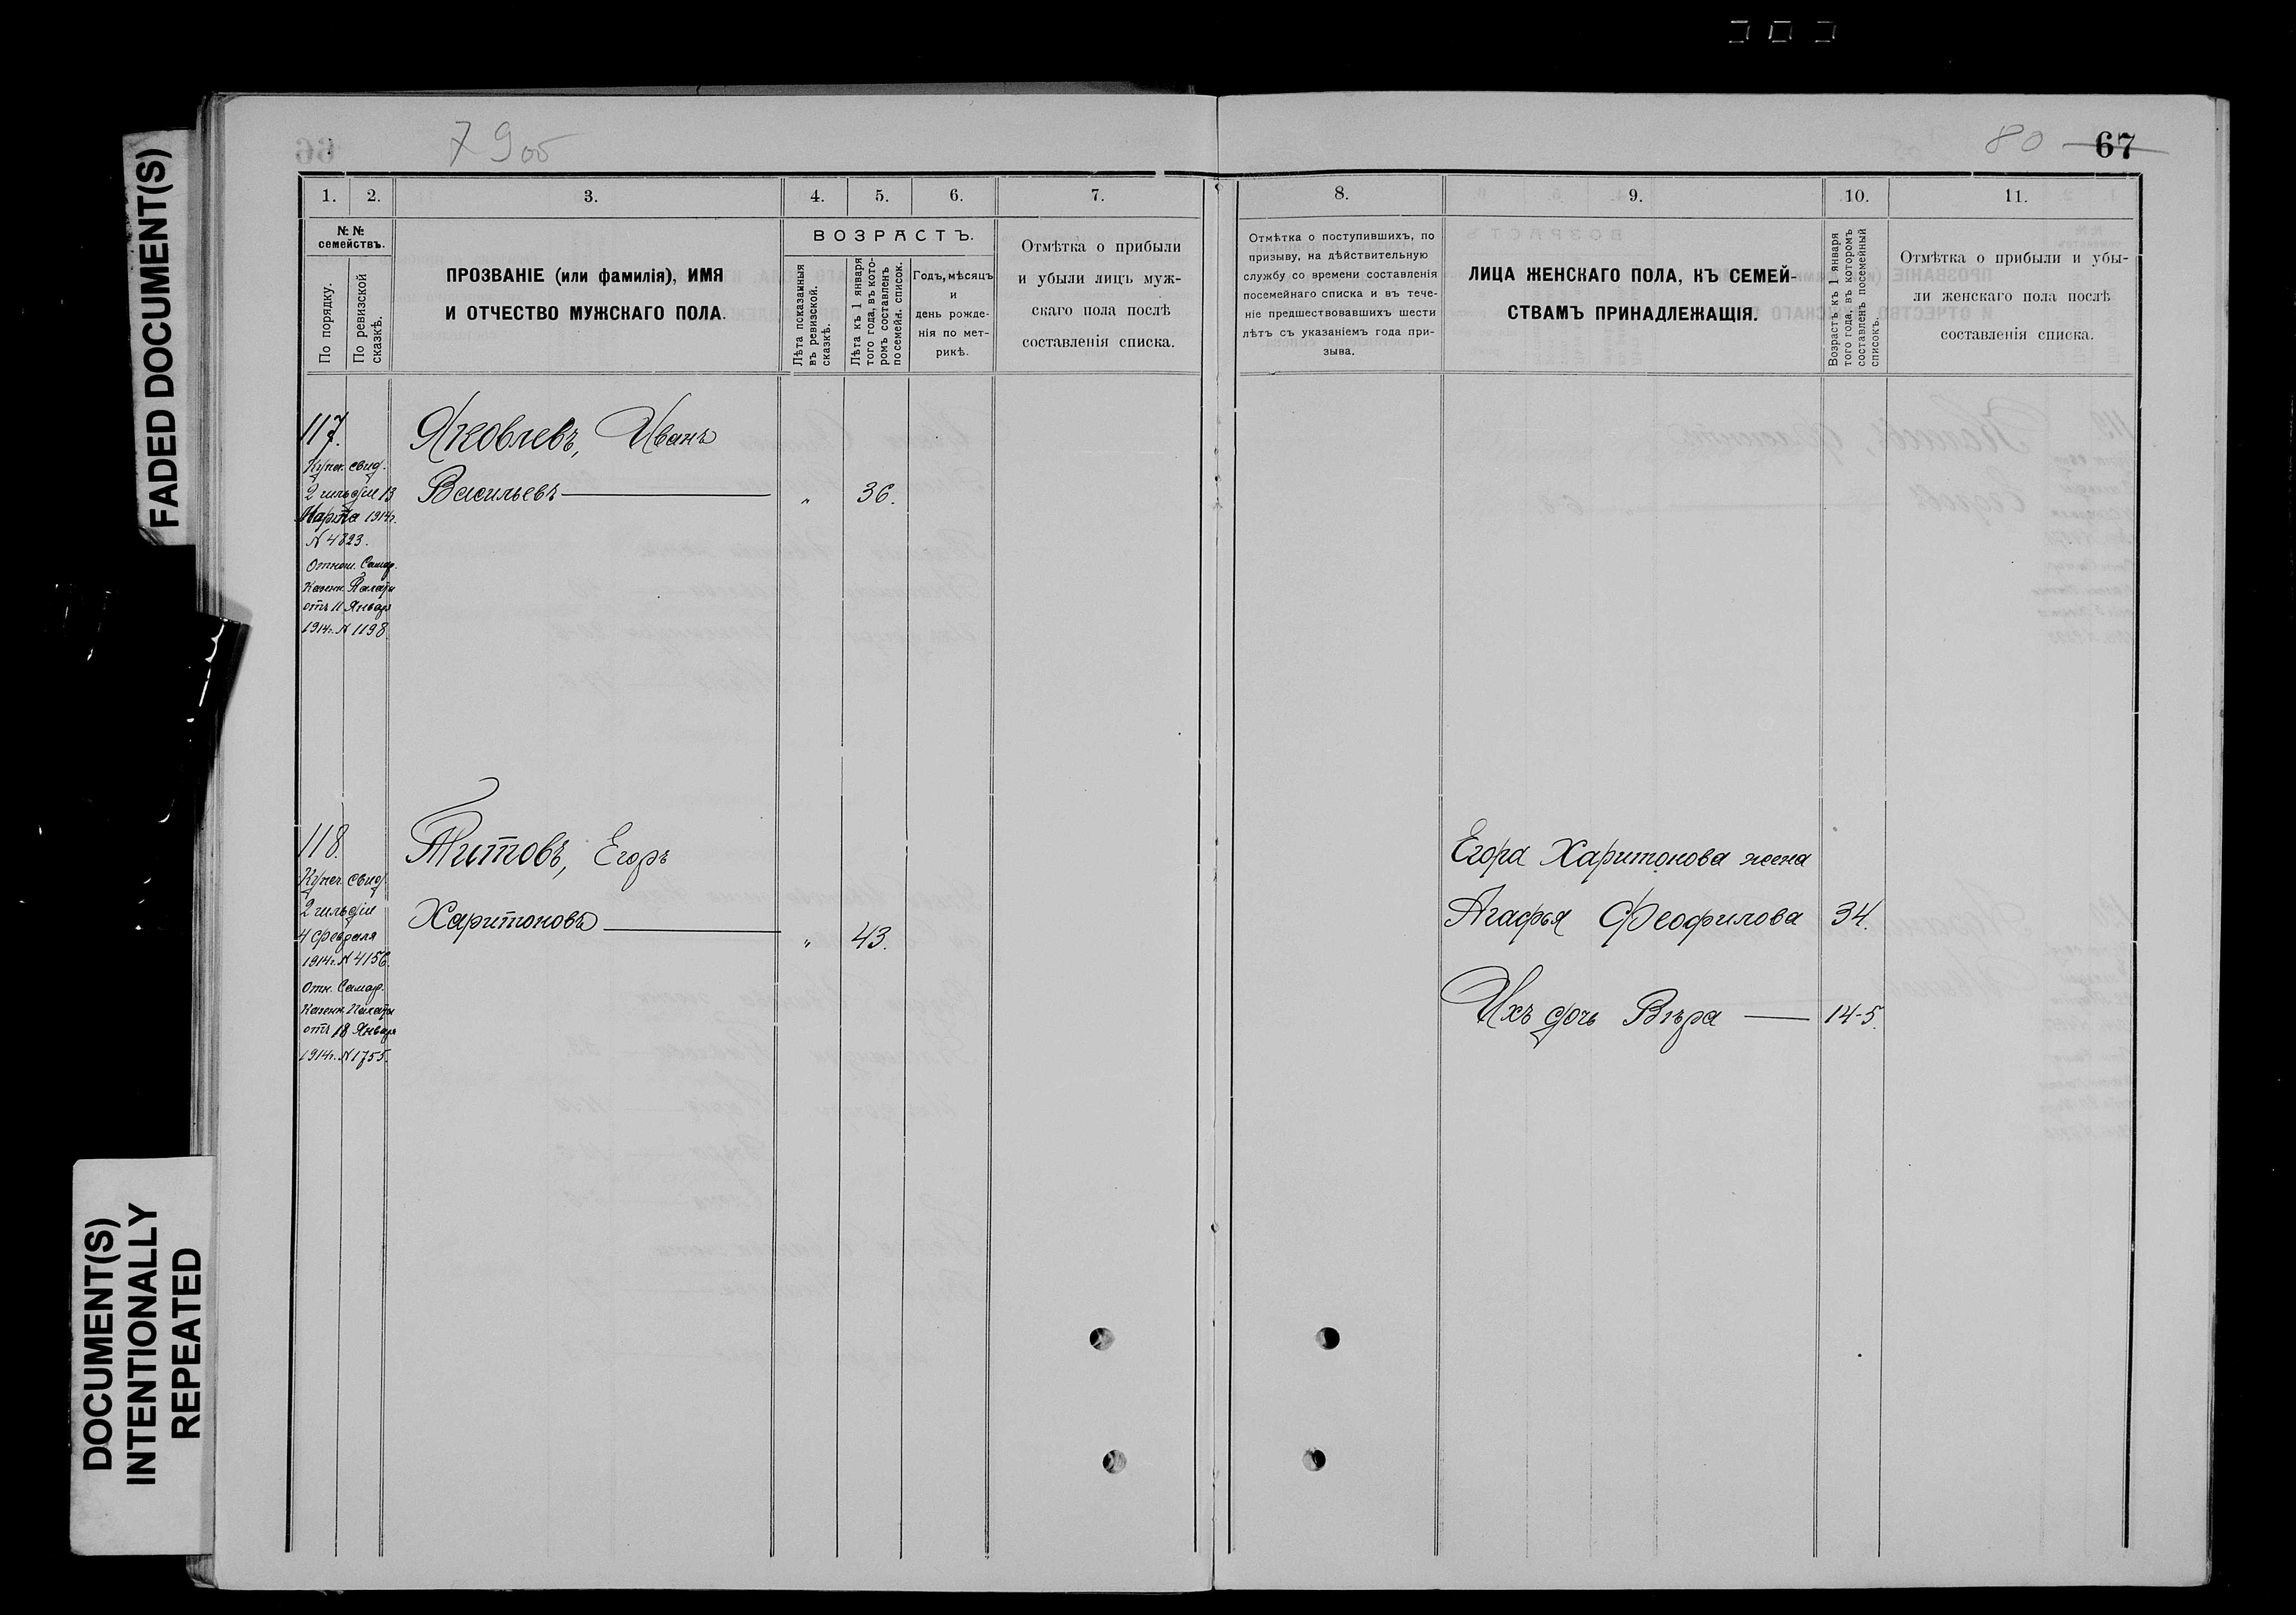 FADED DOCUMENT(S)
DOCUMENT(S)
INTENTIONALLY
REPEATED
79 об
80 67
1. 2. 3. 4. 5. 6. 7.
№ №
семействъ.
По порядку.
По ревизской
сказкѣ.
ПРОЗВАНІЕ (или фамилія), ИМЯ
И ОТЧЕСТВО МУЖСКАГО ПОЛА.
ВОЗРАСТЪ.
Лѣта показанныя
въ ревизской.
сказкѣ.
Лѣта къ 1 января
того года, въ кото-
ромъ составленъ
посемейн. список.
Годъ, мѣсяцъ
и
день рожде-
нія по мет-
рикѣ.
Отмѣтка о прибыли
и убыли лицъ муж-
скаго пола послѣ
составленія списка.
117.
Купеч. свид.
2 гильдіи 13
Марта 1914г.
N 4823.
Отнош. Самар.
Казенн. Палаты
отъ 11 Январ
1914г. N 1198
Яковлевъ, Иванъ
Васильевъ „ 36.
118.
Купеч. свид
2 гильдіи
4 февраля
1914г. N 4156.
Отн. Самар.
Казенн. Палаты
отъ 18 Января
1914г. N 1755.
Титовъ, Егоръ
Харитоновъ „ 43.
8. 9. 10. 11.
Отмѣтка о поступившихъ, по
призыву, на дѣйствительную
службу со времени составленія
посемейнаго списка и въ тече-
ніе предшествовавшихъ шести
лѣтъ съ указаніемъ года при-
зыва.
ЛИЦА ЖЕНСКАГО ПОЛА, КЪ СЕМЕЙ-
СТВАМЪ ПРИНАДЛЕЖАЩІЯ.
Возрастъ къ 1 января
того года, въ которомъ
составленъ посемейный
списокъ.
Отмѣтка о прибыли и убы-
ли женскаго пола послѣ
составленія списка.
Егора Харитонова жена
Агафья Феофилова 34.
Ихъ дочь Вѣра 14-5.